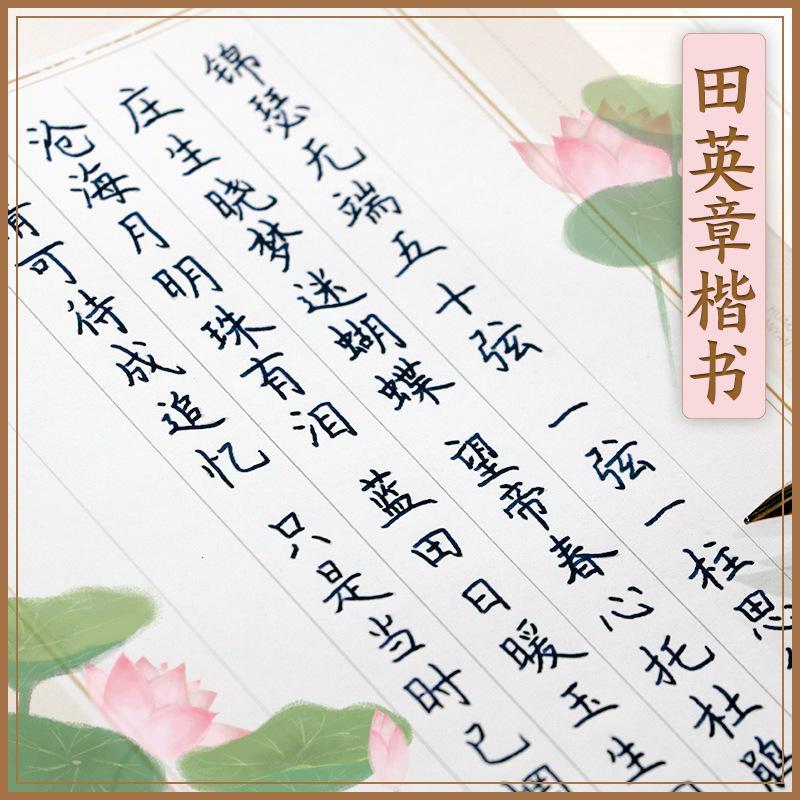 田英章楷书
锦瑟无端五十弦 一弦一柱思
庄生晓梦迷蝴蝶 望帝春心托杜鹃
沧海月明珠有泪 蓝田日暖玉生
情可待成追忆 只是当时已惘